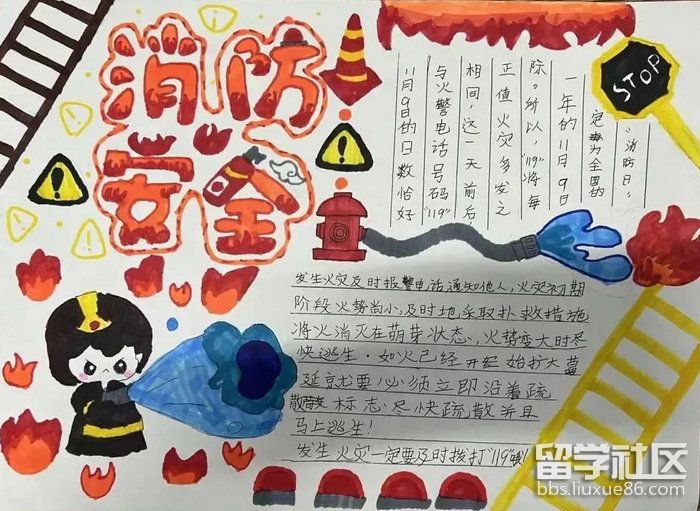 消防
安全
STOP
11月9日的日数恰好
与火警电话号码"119"
相同,这一天前后,
正值火灾多发之
际。所以,"119"将每
一年的11月9日
定为全国的
"消防日"。
发生火灾及时报警电话通知他人,火灾初期
阶段火势尚小,及时地采取扑救措施
将火消灭在萌芽状态,火势变大时尽
快逃生·如火已经开经始扩大蔓
延就要必须立即沿着疏
散标志尽快疏散并且
马上逃生!
发生火灾一定要及时拨打"119"哦!
留学社区
bbs.liuxue86.com